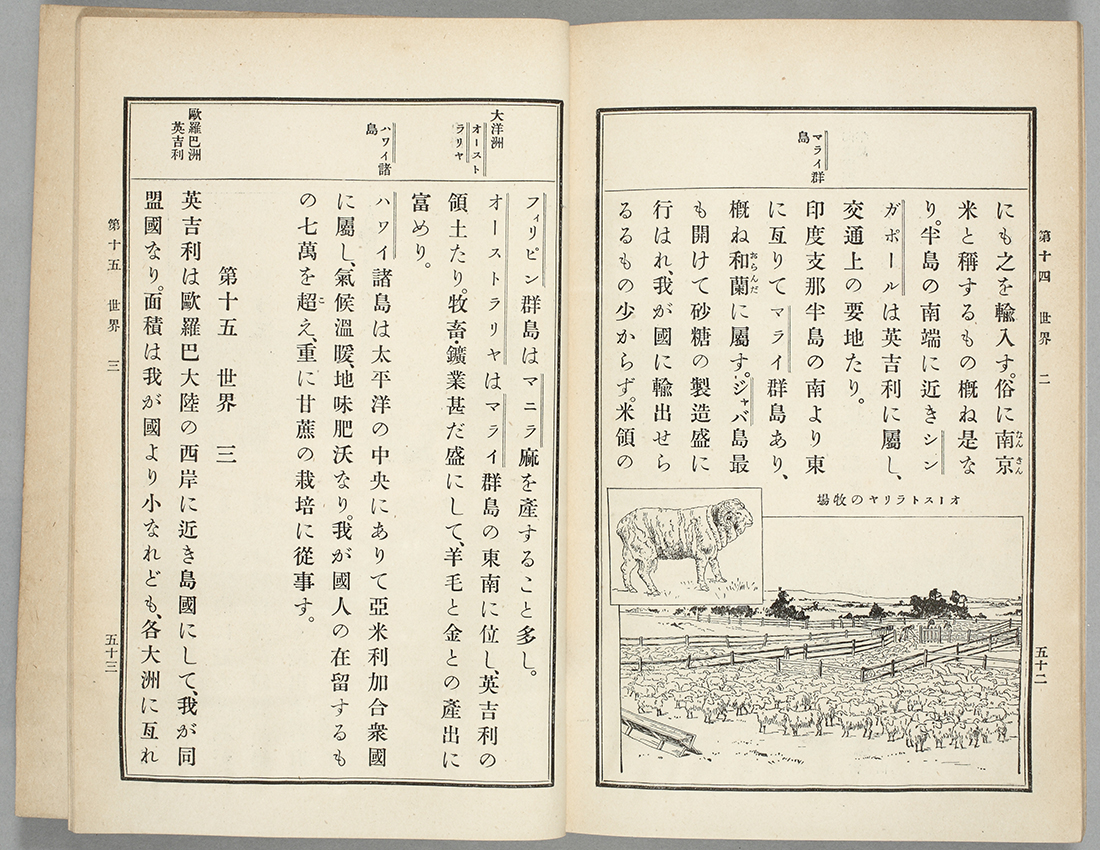 第十四 世界 二
五十二
マライ群
島
にも之を輸入す。俗に南京
なんきん
米と稱するもの概ね是な
り。半島の南端に近きシン
ガポールは英吉利に屬し、
交通上の要地たり。
印度支那半島の南より東
に亙りてマライ群島あり、
概ね和蘭に屬す。ジャバ島最
おらんだ
も開けて砂糖の製造盛に
行はれ、我が國に輸出せら
るるもの少からず。米領の
オーストラリヤの牧場
大洋洲
オースト
ラリヤ
ハワイ諸
島
歐羅巴洲
英吉利
フィリピン群島はマニラ麻を產すること多し。
オーストラリヤはマライ群島の東南に位し、英吉利の
領土たり。牧畜・鑛業甚だ盛にして、羊毛と金との產出に
富めり。
ハワイ諸島は太平洋の中央にありて亞米利加合衆國
に屬し、氣候溫暖、地味肥沃なり。我が國人の在留するも
の七萬を超え、重に甘蔗の栽培に從事す。
こ
第十五 世界 三
英吉利は歐羅巴大陸の西岸に近き島國にして、我が同
盟國なり。面積は我が國より小なれども、各大洲に亙れ
第十五 世界 三
五十三